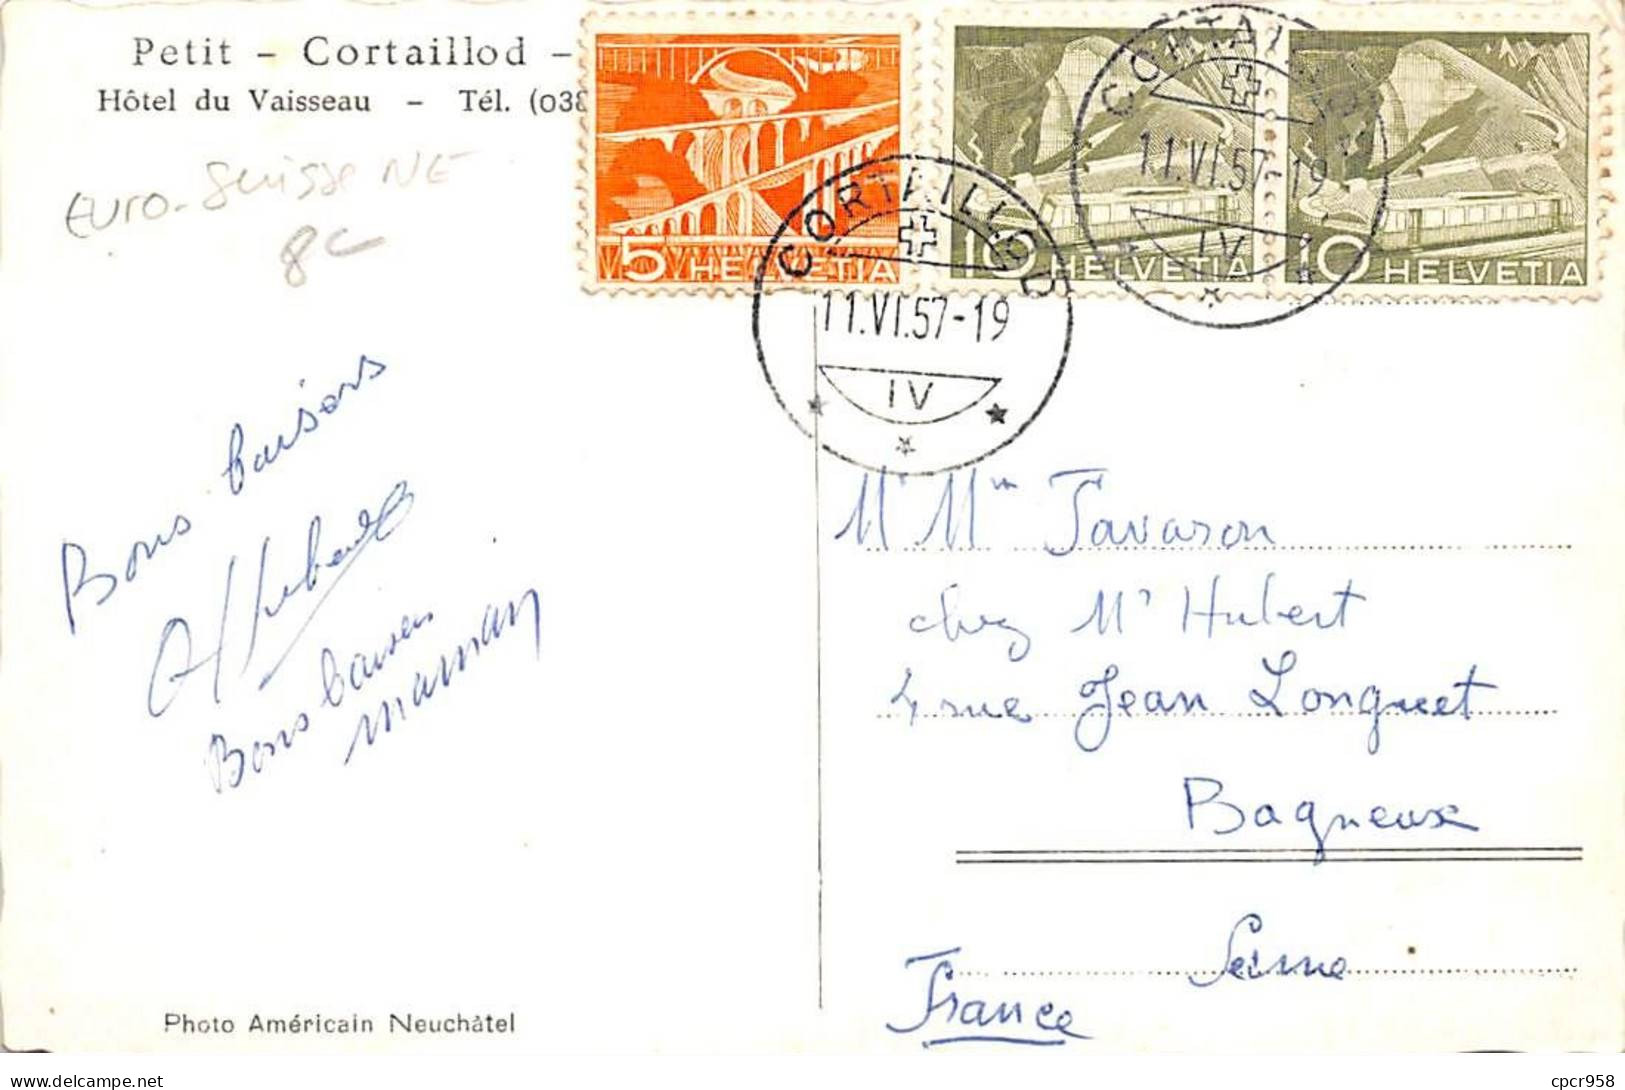 Petit - Cortaillod -
Hôtel du Vaisseau - Tél. (038
EURO-Suisse NE
8c
5 HELVETIA
10 HELVETIA
10 HELVETIA
CORTAILLOD
11.VI.57-19
IV
CORTAILLOD
11.VI.57-19
IV
Bons baisers
Bons baisers
maman
Mr Mm Tavaron
chez Mr Hubert
4 rue Jean Longuet
Bagneux
Seine
France
Photo Américain Neuchâtel
delcampe.net
cpcr958